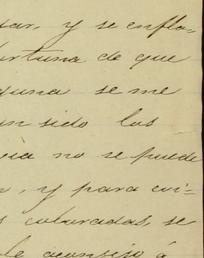 sar, y se enfla-
fortuna de que
guna se me
an sido los
via no se puede
, y para evi-
s coloradas, se
le aconsejo á